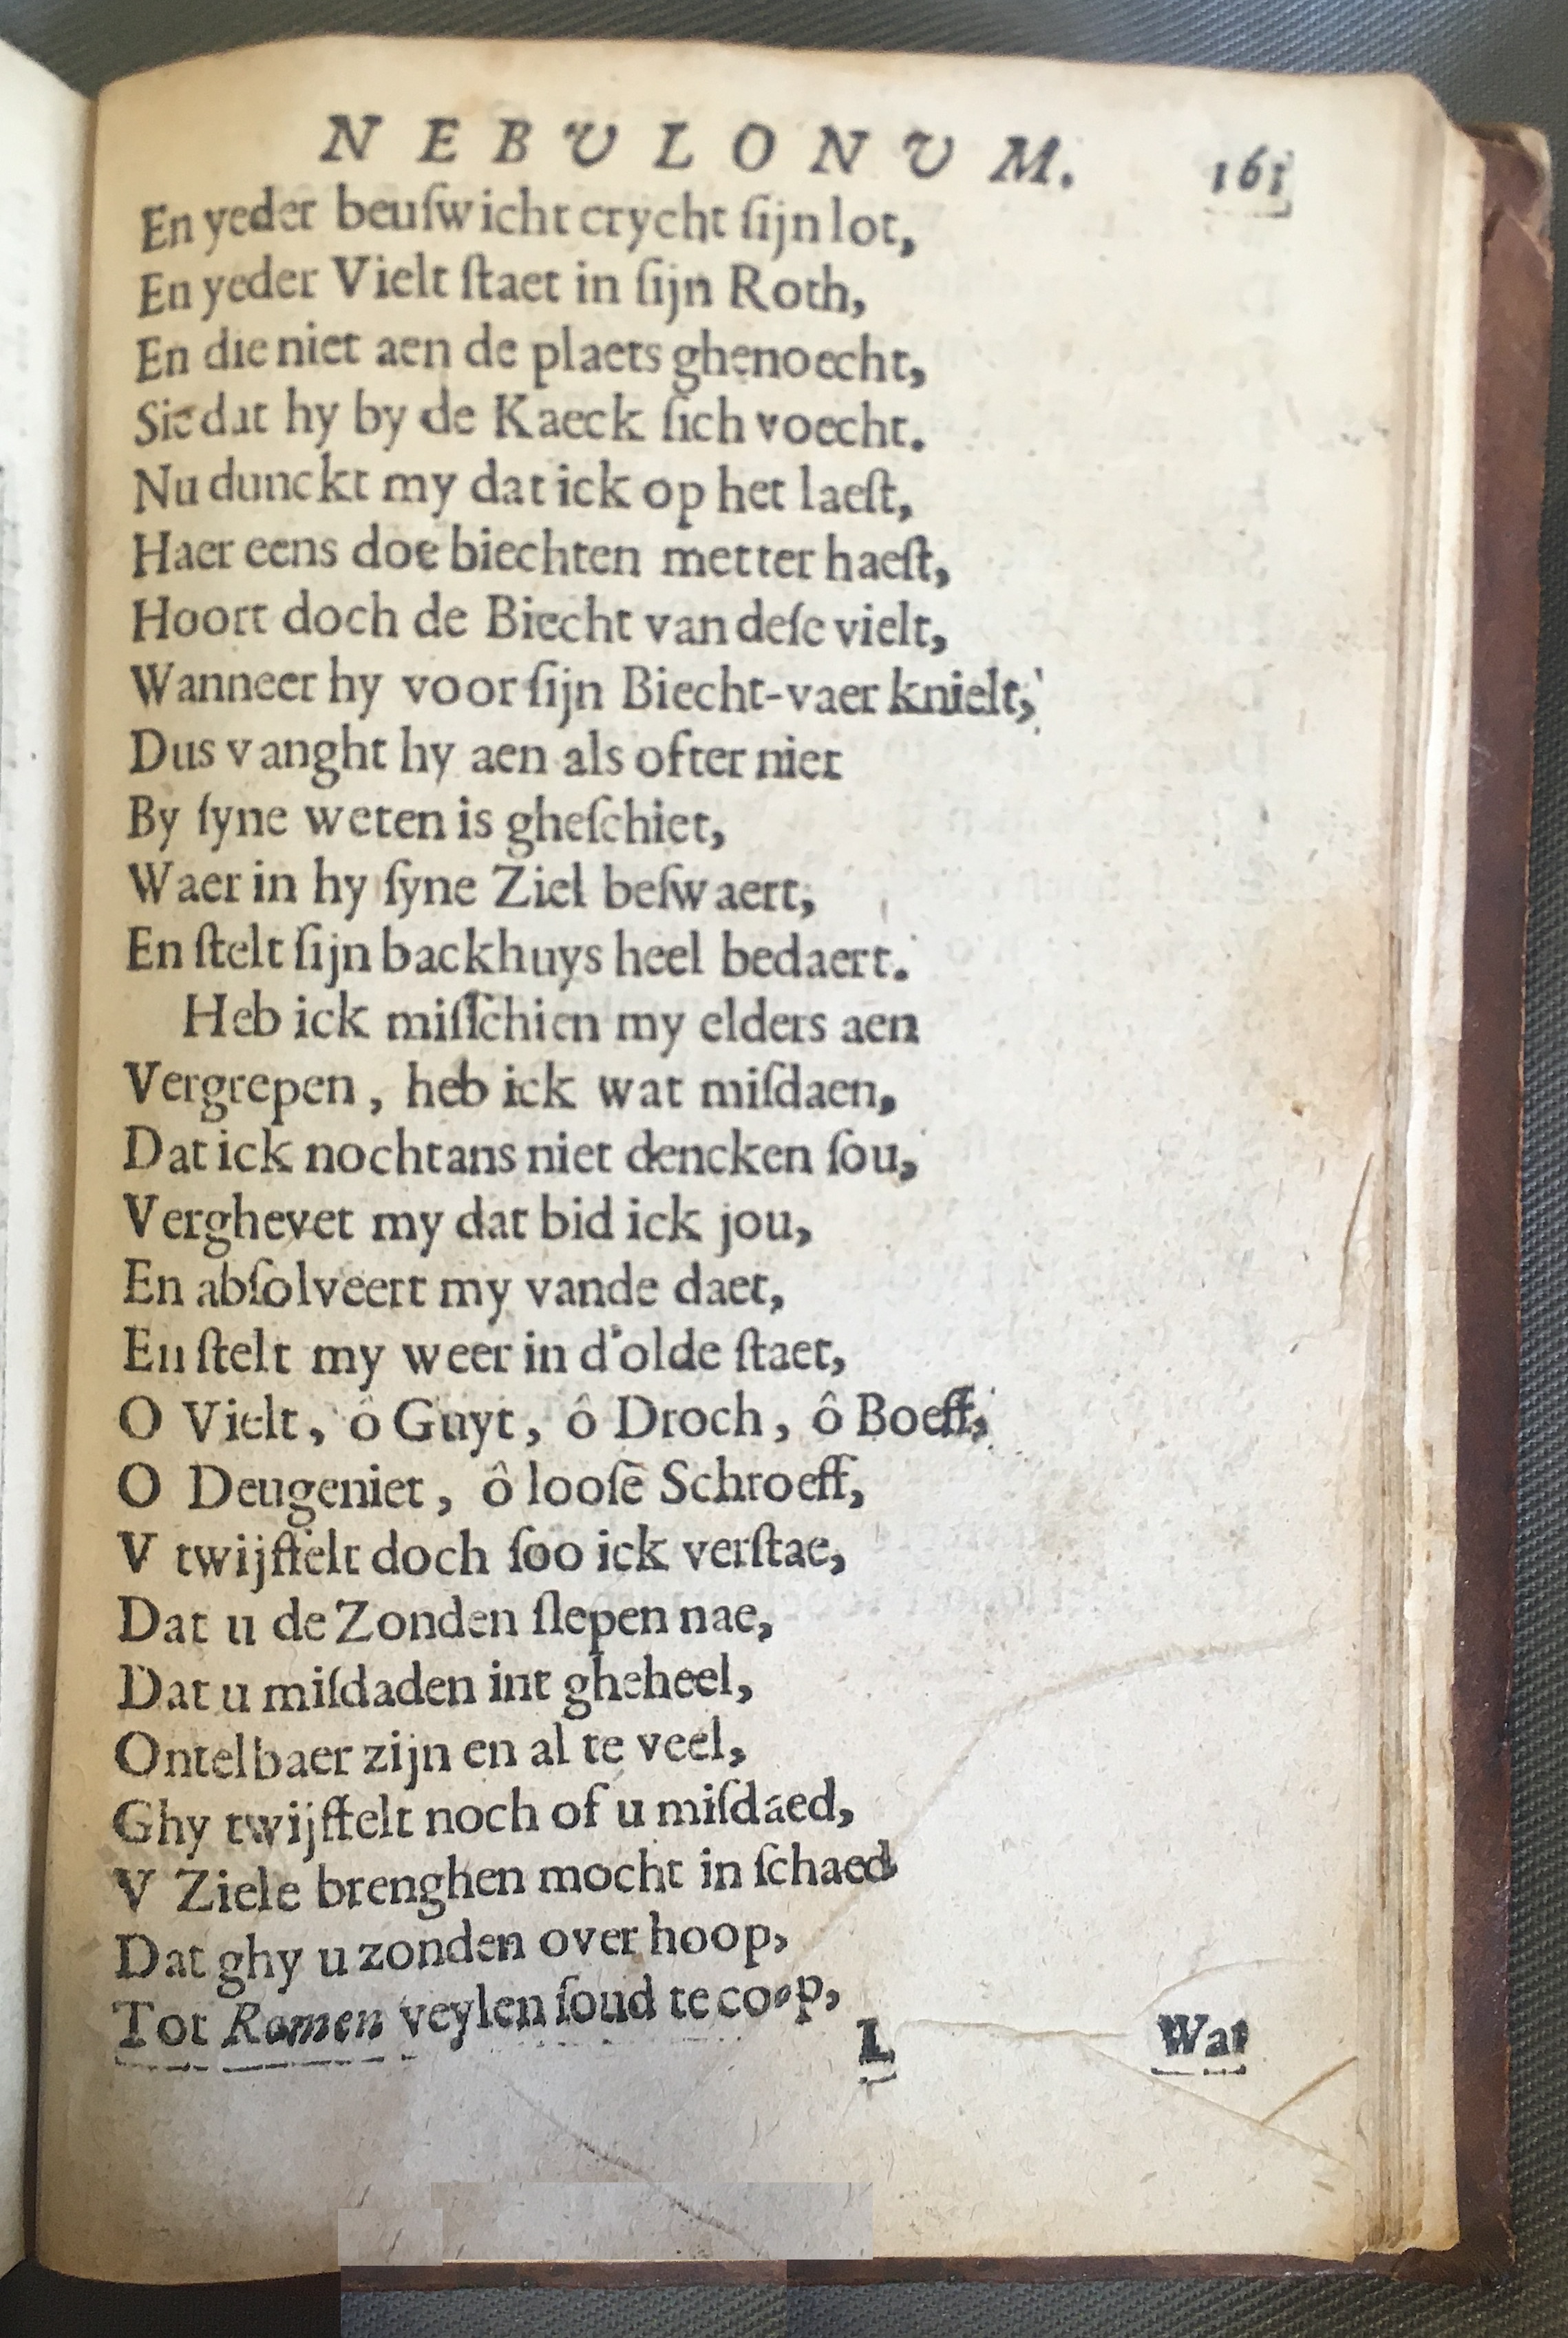 NEBULONUM. 161
En yeder beuſwicht crycht ſijn lot,
En yeder Vielt ſtaet in ſijn Roth,
En die niet aen de plaets ghenoecht,
Sie dat hy by de Kaeck ſich voecht.
Nu dunckt my dat ick op het laeſt,
Haer eens doe biechten metter haeſt,
Hoort doch de Biecht van deſe vielt,
Wanneer hy voor ſijn Biecht-vaer knielt,
Dus vanght hy aen als ofter niet
By ſyne weten is gheſchiet,
Waer in hy ſyne Ziel beſwaert,
En ſtelt ſijn backhuys heel bedaert.
Heb ick miſſchien my elders aen
Vergrepen, heb ick wat miſdaen,
Dat ick nochtans niet dencken ſou,
Verghevet my dat bid ick jou,
En abſolveert my vande daet,
En ſtelt my weer in d'olde ſtaet,
O Vielt, ô Guyt, ô Droch, ô Boeff,
O Deugeniet, ô looſe Schroeff,
V twijffelt doch ſoo ick verſtae,
Dat u de Zonden ſlepen nae,
Dat u miſdaden int gheheel,
Ontelbaer zijn en al te veel,
Ghy twijffelt noch of u miſdaed,
V Ziele brenghen mocht in ſchaed
Dat ghy u zonden over hoop,
Tot Romen veylen ſoud te coop,
L Wat